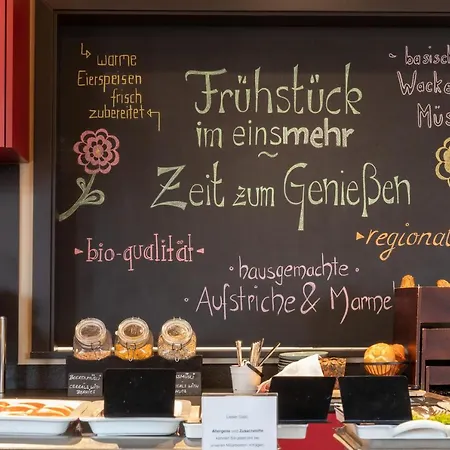 warme
Eierspeisen
frisch
zubereitet
Frühstück
im einsmehr
~
Zeit zum Genießen
basisch
Wacke
Müs
bio-qualität
regional
hausgemachte
Aufstriche & Marme